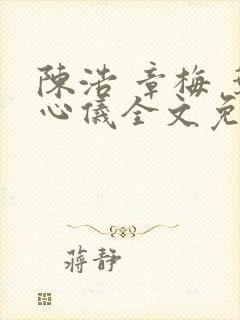 陳浩 章梅
心儀全文免
蔣靜